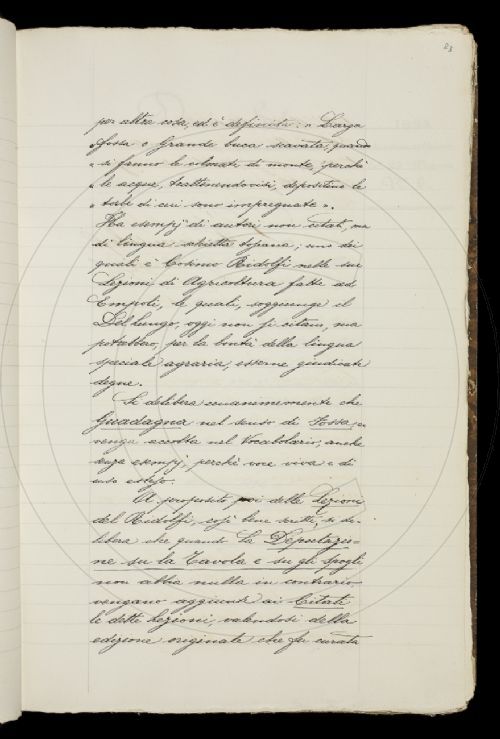 83
per altra cosa, ed è definita: « Larga
« fossa o grande buca scavata, quando
« si fanno le colmate di monte, perché
« le acque, trattenendovisi, depositino le
« torbe di cui sono impregnate ».
Ha esempj di autori non citati, ma
di lingua schietta topana; uno dei
quali è Cosimo Ridolfi nelle sue
Lezioni di Agricoltura fatte ad
Empoli, le quali, soggiunge il
Del Lungo, oggi non si citano, ma
potrebbero, per la bontà della lingua
speciale agraria, esserne giudicate
degne.
Si delibera unanimemente che
Guadagna nel senso di Fossa,
venga accolta nel Vocabolario, anche
senza esempj, perché voce viva e di
uso esteso.
A proposito poi delle Lezioni
del Ridolfi, così bene scritte, si de-
libera che quando la Deputazio-
ne su la Tavola e su gli spogli
non abbia nulla in contrario
vengano aggiunte ai Citati
le dette Lezioni, valendosi della
edizione originale che fu curata